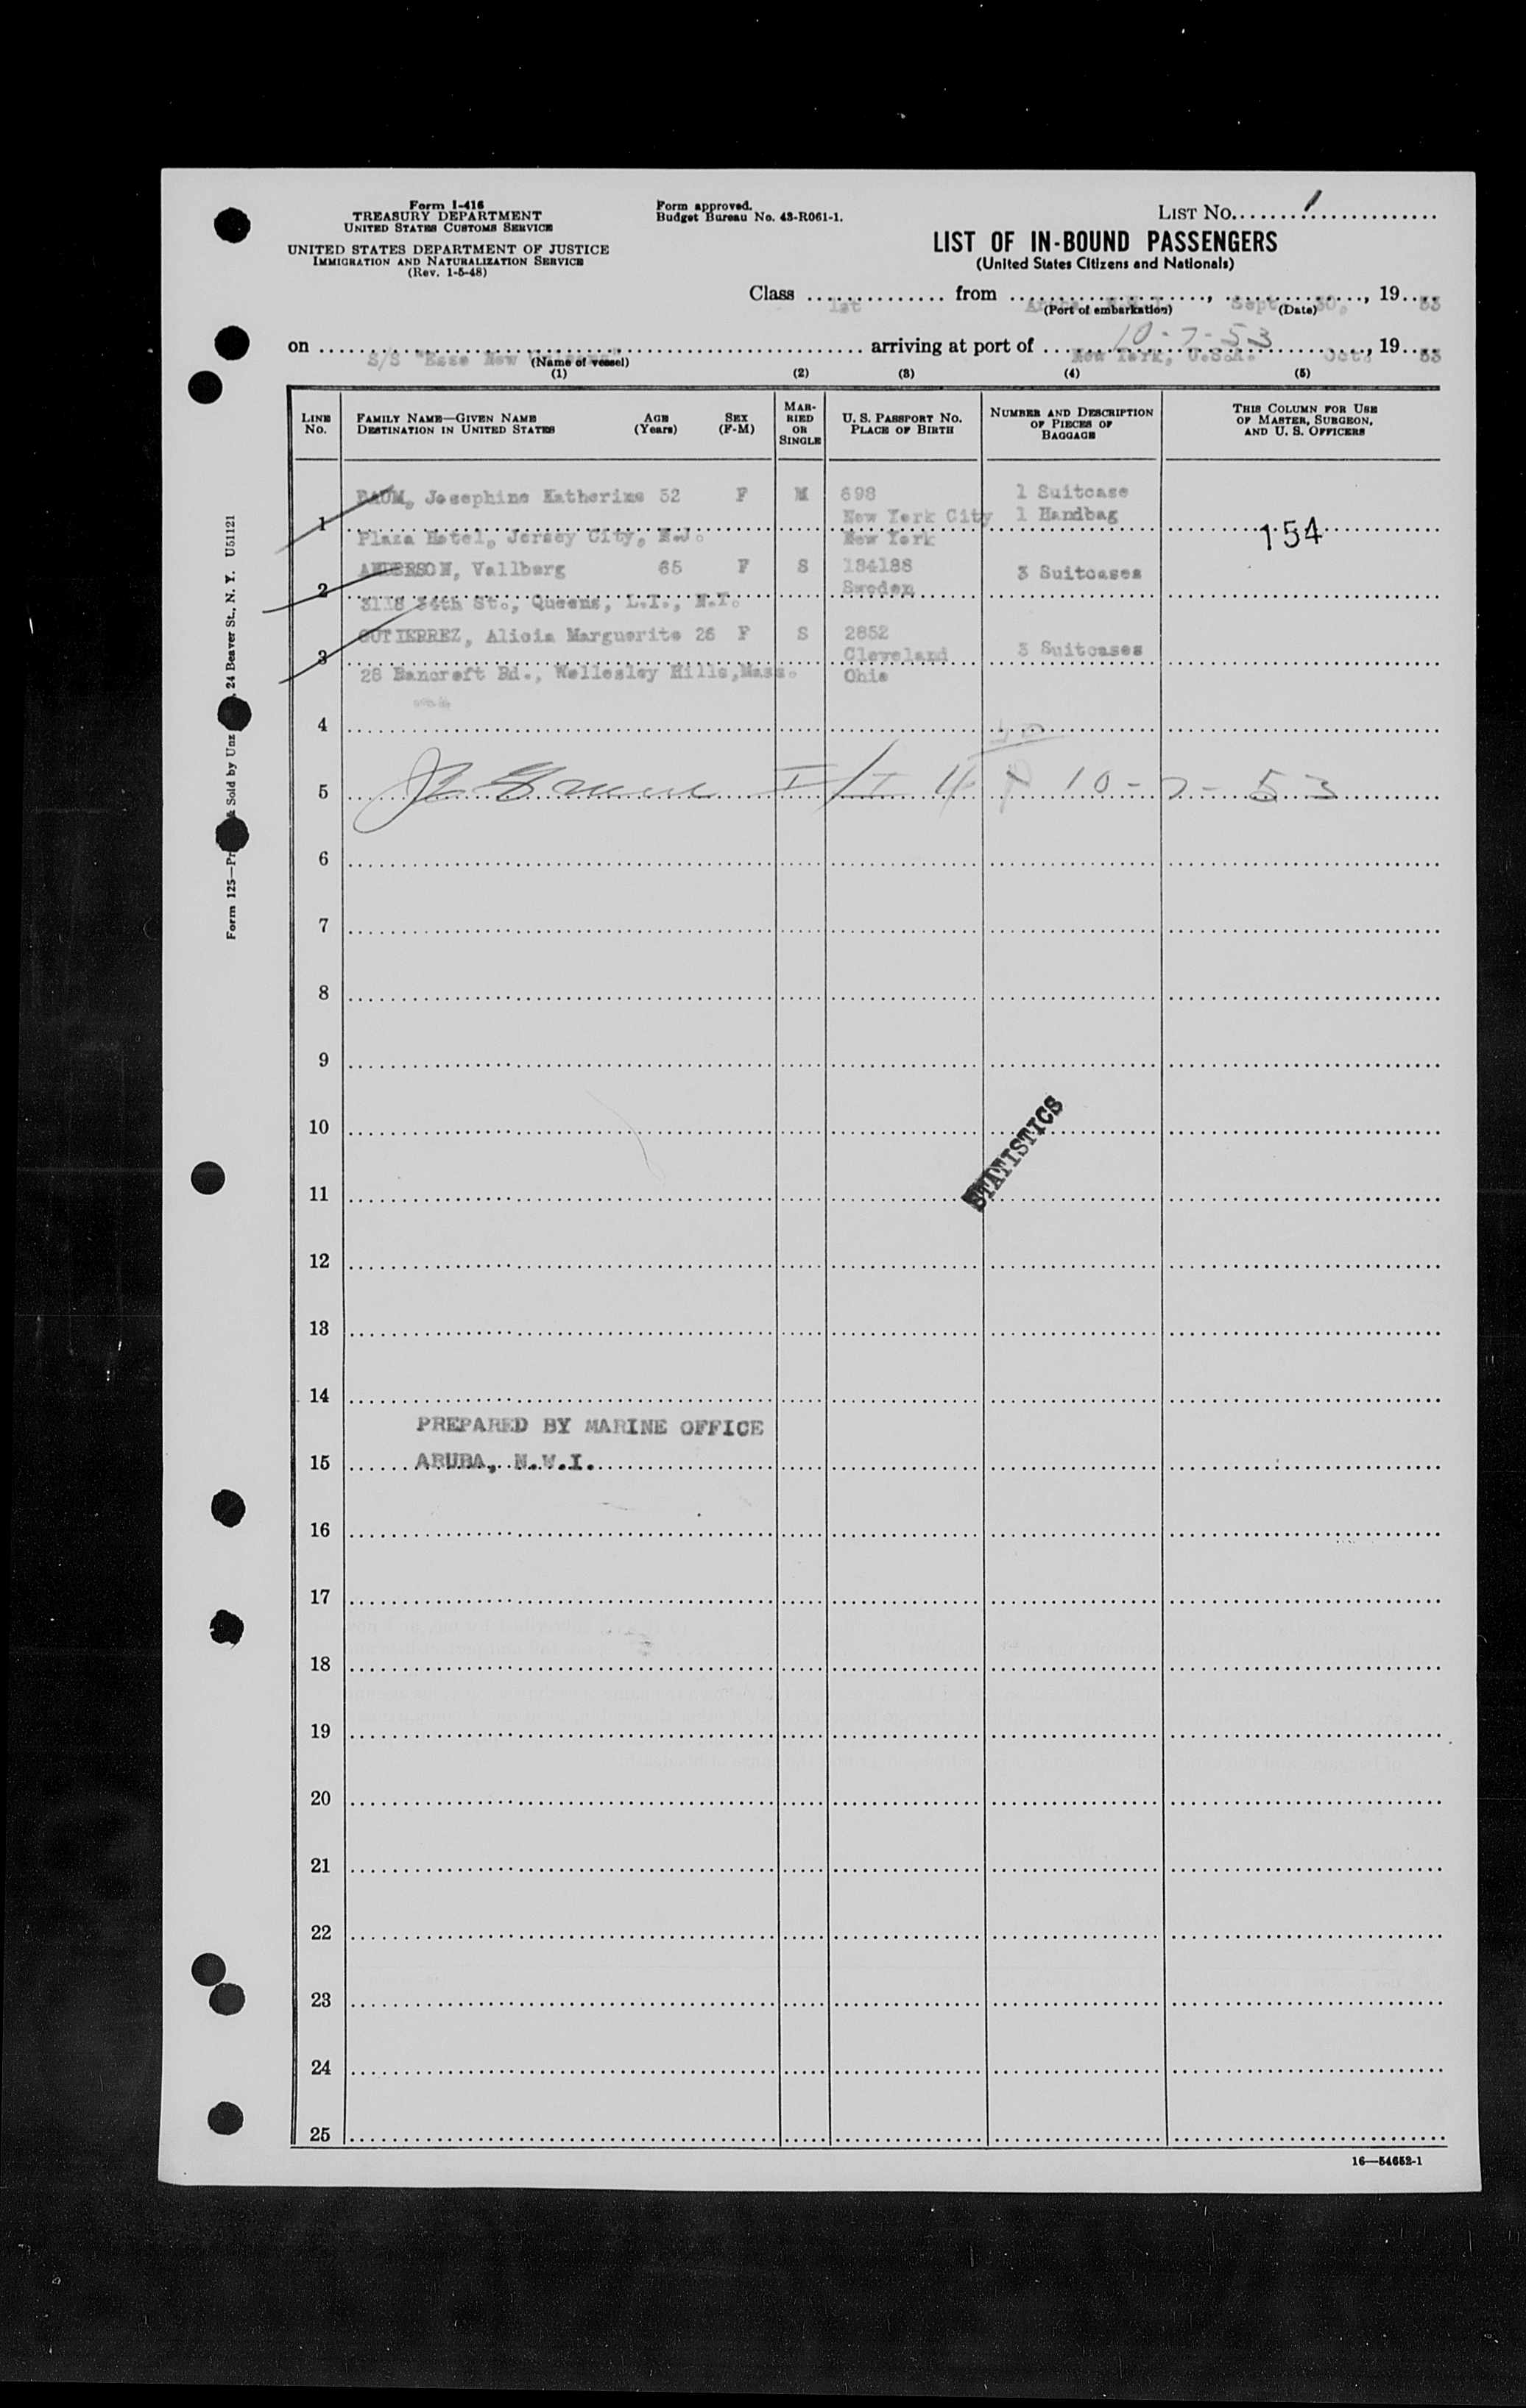 Form I-416
TREASURY DEPARTMENT
UNITED STATES CUSTOMS SERVICE
UNITED STATES DEPARTMENT OF JUSTICE
IMMIGRATION AND NATURALIZATION SERVICE
(Rev. 1-5-48)
Form approved.
Budget Bureau No. 43-R061-1.
LIST No. 1
LIST OF IN-BOUND PASSENGERS
(United States Citizens and Nationals)
Class 1st from Aruba, , Sept. 30, , 19 53
(Port of embarkation) (Date)
10-7-53
on S/S "Esso New arriving at port of New York, U.S.A. Oct. , 19 53
(Name of vessel)
(1) (2) (3) (4) (5)
LINE No. FAMILY NAME—GIVEN NAME DESTINATION IN UNITED STATES AGE (Years) SEX (F-M) MARRIED OR SINGLE U. S. PASSPORT NO. PLACE OF BIRTH NUMBER AND DESCRIPTION OF PIECES OF BAGGAGE THIS COLUMN FOR USE OF MASTER, SURGEON, AND U. S. OFFICERS
BAUM, Josephine Katherine 52 F M 698 1 Suitcase
1 New York City 1 Handbag 154
Plaza Hotel, Jersey City, N.J. New York
ANDERSON, Vallberg 65 F S 134188 3 Suitcases
2 Sweden
3118 34th St., Queens, L.I., N.Y.
GUTIERREZ, Alicia Marguerite 26 F S 2852
3 Cleveland 3 Suitcases
28 Bancroft Rd., Wellesley Hills, Mass. Ohio
4
5 10-7-53
6
7
8
9
10
STATISTICS
11
12
13
14
PREPARED BY MARINE OFFICE
15 ARUBA, N.W.I.
16
17
18
19
20
21
22
23
24
25
16—54652-1
Form 125— Sold by Unz 24 Beaver St., N. Y. U51121